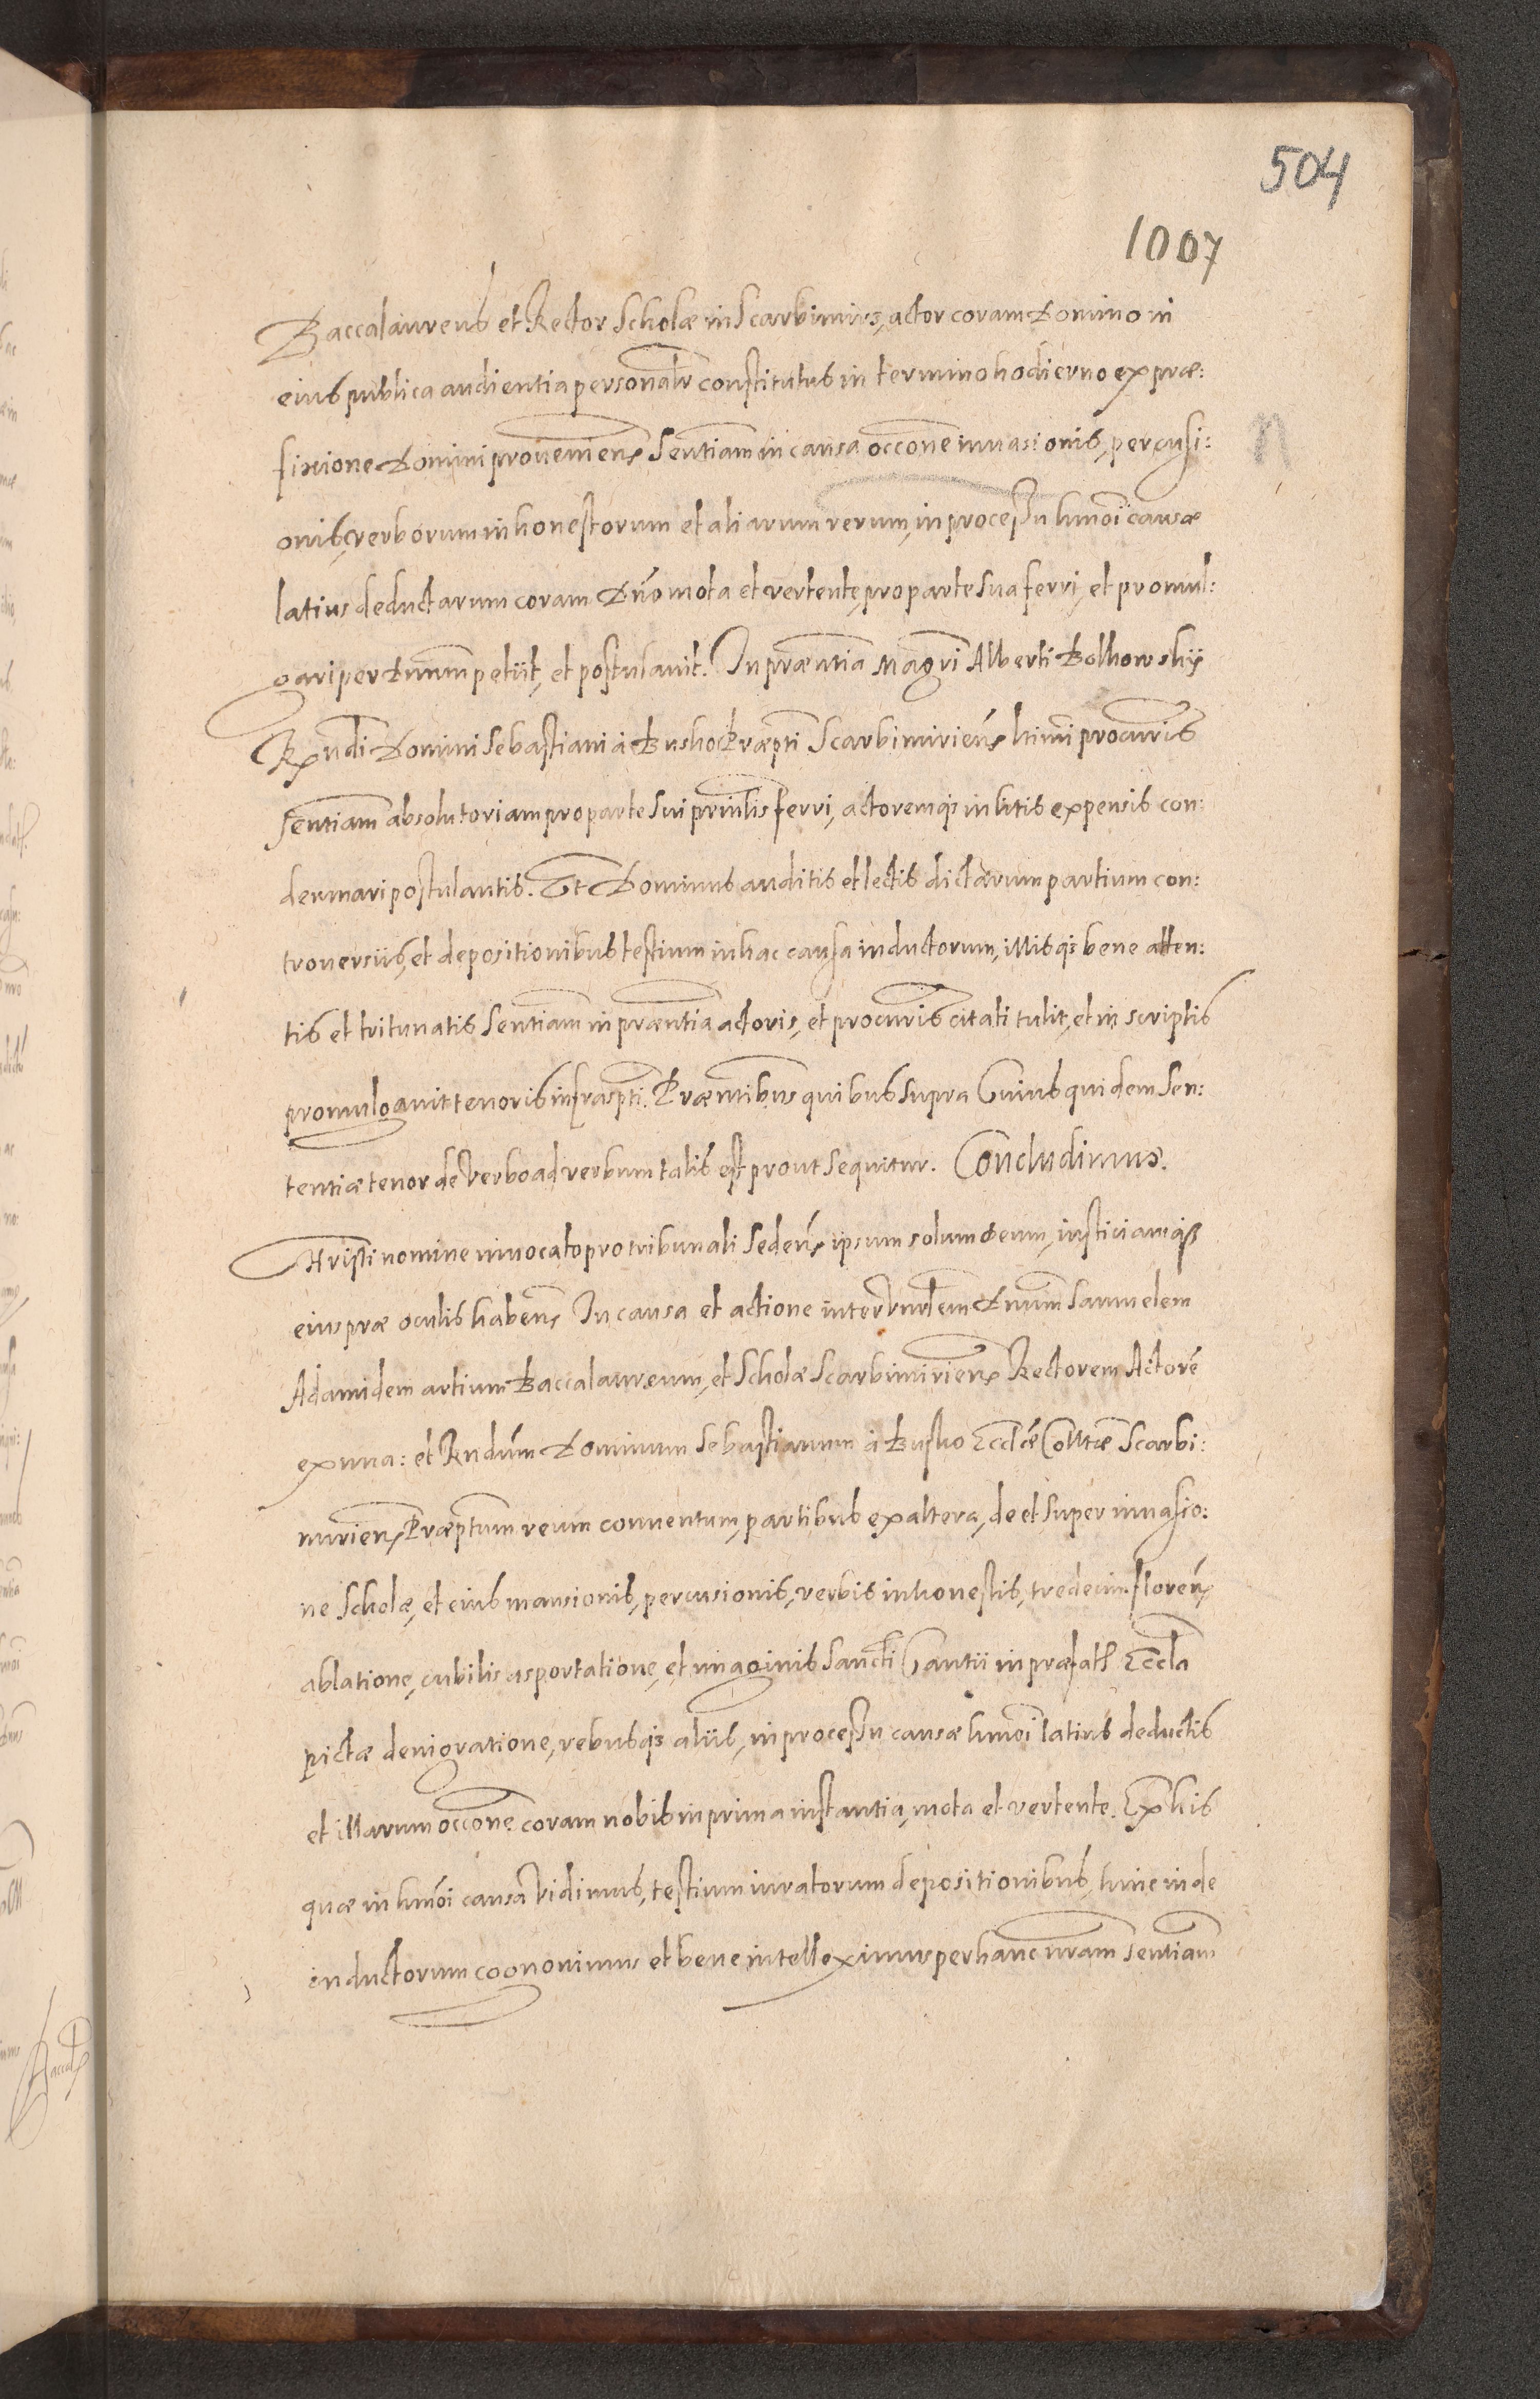 504
1007
Baccalaureus et Rector Scholæ in Scarbimirs, actor coram Domino in
eius publica audientia personalr constitutus in termino hodierno ex præ:
fixione Domini proueniens Sentiam in causa occone inuasionis, percusi:
onis, verborum inhonestorum et aliarum rerum, in processu hmoi causæ
latius deductarum coram Dno mota et vertente, pro parte sua ferri, et promul:
gari per Dnum petiit, et postulauit. In præntia Magri Alberti Bolhowskÿ
Rndi Domini Sebastiani à Busko Præpti Scarbimirien ltimi procuris
sentiam absolutoriam pro parte sui prinlis ferri, actoremq; in litis expensis con:
demnari postulantis. Et Dominus auditis et lectis dictarum partium con:
trouersiis, et depositionibus testium in hac causa inductorum, illisq; bene atten:
tis et tritunatis Sentiam in præntia actoris, et procuris citati tulit, et in scriptis
promulgauit tenoris infrascpti. Præntibus quibus supra Cuius quidem Sen:
tentiæ tenor de verbo ad verbum talis est prout sequitur. Concludimus.
Christi nomine inuocato pro tribunali Sedens ipsum solum deum, iusticiamq;
eius præ oculis habens In causa et actione inter Dnum Samuelem
Adamidem artium Baccalaureum, et Scholæ Scarbimiriens Rectorem Actore
ex una: et Rndum Dominum Sebastianum à Busko Eccliæ Colltæ Scarbi:
mirien Præptum reum conuentum, partibus ex altera, de et super inuasio:
ne Scholæ, et eius mansionis, percusionis, verbis inhonestis, tredecim floren
ablatione, cubilis asportatione, et imaginis Sancti Cantii in præfata Eccla
pictæ denigratione, rebusq; aliis, in processu causæ hmoi latius deductis
et illarum occone coram nobis in prima instantia, mota et vertente. Ex his
quæ in hmoi causa vidimus, testium iuratorum depositionibus, hinc inde
inductorum cognouimus et bene intelleximus per hanc nram sentiam